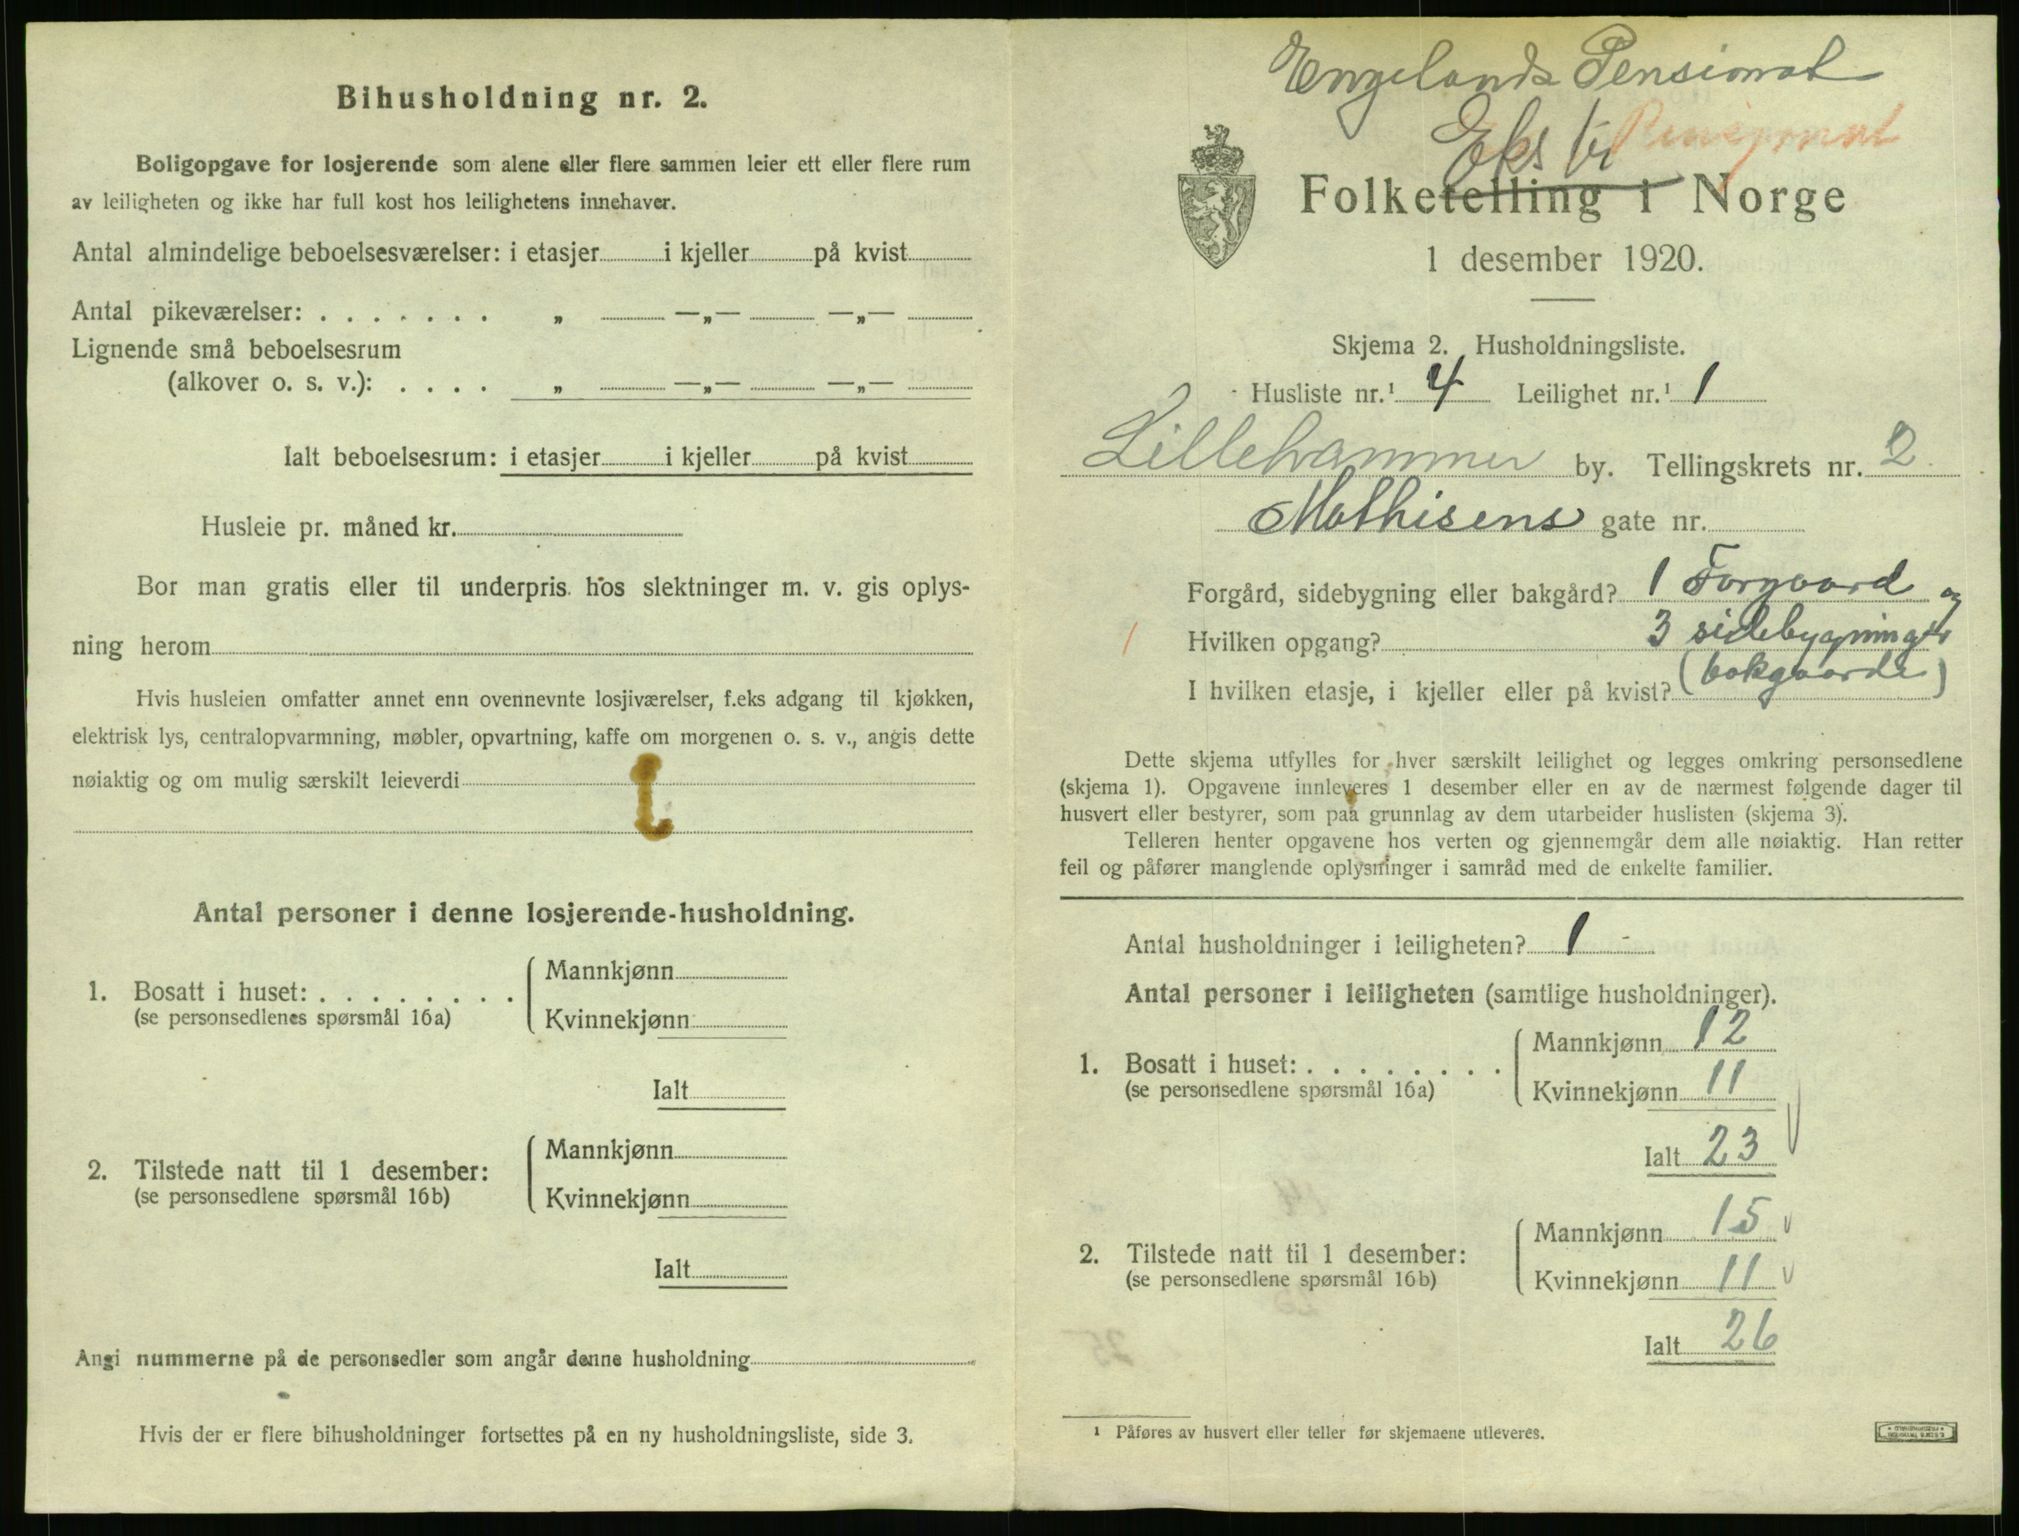 Bihusholdning nr. 2.
Boligopgave for losjerende som alene eller flere sammen leier ett eller flere rum
av leiligheten og ikke har full kost hos leilighetens innehaver.
Antal almindelige beboelsesværelser: i etasjer i kjeller på kvist
Antal pikeværelser: . . . . . . . „ —„— —„—
Lignende små beboelsesrum
(alkover o. s. v.): . . . . „ —„— —„—
Ialt beboelsesrum: i etasjer i kjeller på kvist
Husleie pr. måned kr.
Bor man gratis eller til underpris hos slektninger m. v. gis oplys-
ning herom
Hvis husleien omfatter annet enn ovennevnte losjiværelser, f.eks adgang til kjøkken,
elektrisk lys, centralopvarmning, møbler, opvartning, kaffe om morgenen o. s. v., angis dette
nøiaktig og om mulig særskilt leieverdi
Antal personer i denne losjerende-husholdning.
1. Bosatt i huset: . . . . . . . .
(se personsedlenes spørsmål 16a)
Mannkjønn
Kvinnekjønn
Ialt
2. Tilstede natt til 1 desember:
(se personsedlene spørsmål 16b)
Mannkjønn
Kvinnekjønn
Ialt
Angi nummerne på de personsedler som angår denne husholdning
Hvis der er flere bihusholdninger fortsettes på en ny husholdningsliste, side 3.
Engelands Pensionat
Folketelling i Norge
1 desember 1920.
Skjema 2. Husholdningsliste.
Husliste nr.¹ 4 Leilighet nr.¹ 1
Lillehammer by. Tellingskrets nr. 2
Mathisens gate nr.
Forgård, sidebygning eller bakgård? 1 Forgaard og
1 Hvilken opgang? 3 sidebygninger
I hvilken etasje, i kjeller eller på kvist? (bakgaarde)
Dette skjema utfylles for hver særskilt leilighet og legges omkring personsedlene
(skjema 1). Opgavene innleveres 1 desember eller en av de nærmest følgende dager til
husvert eller bestyrer, som paa grunnlag av dem utarbeider huslisten (skjema 3).
Telleren henter opgavene hos verten og gjennemgår dem alle nøiaktig. Han retter
feil og påfører manglende oplysninger i samråd med de enkelte familier.
Antal husholdninger i leiligheten? 1 -
Antal personer i leiligheten (samtlige husholdninger).
1. Bosatt i huset: . . . . . . . .
(se personsedlene spørsmål 16a)
Mannkjønn 12
Kvinnekjønn 11
Ialt 23
2. Tilstede natt til 1 desember:
(se personsedlene spørsmål 16b)
Mannkjønn 15
Kvinnekjønn 11
Ialt 26
¹ Påføres av husvert eller teller før skjemaene utleveres.